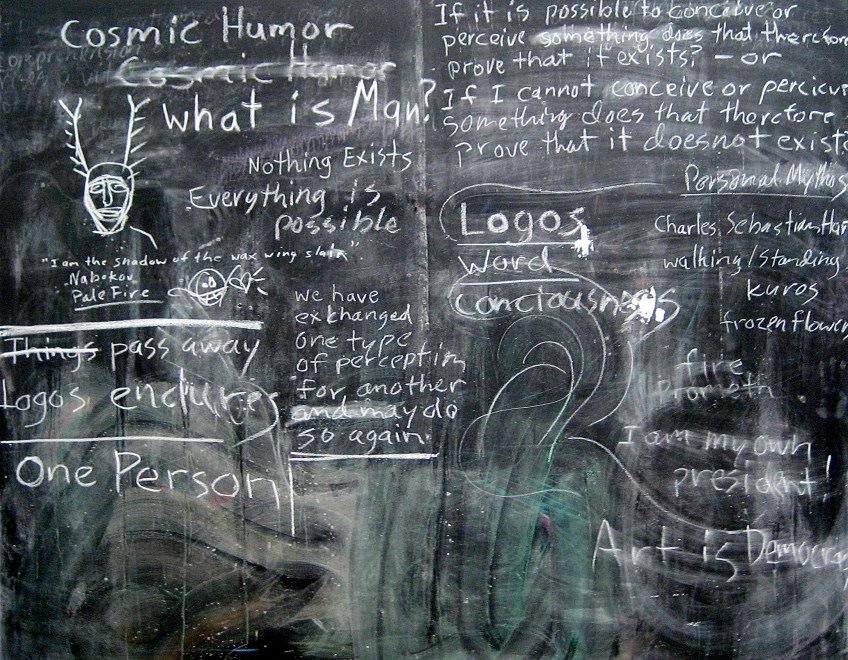 Cosmic Humor
Cosmic Humor
What is Man?
Nothing Exists
Everything is
possible
"I am the shadow of the wax wing slain"
Nabokov
Pale Fire
Things pass away
Logos endures
One Person
we have
exchanged
one type
of perception
for another
and may do
so again.
If it is possible to conceive or
perceive something does that therefore
prove that it exists? - or
If I cannot conceive or percieve
something does that therefore
prove that it doesnot exist
Personal Mythos
Logos
Word
Conciousness
Charles, Sebastian, Har
walking/standing
kuros
frozen flower
fire
Prometh
I am my own
president!
Art is Democrac